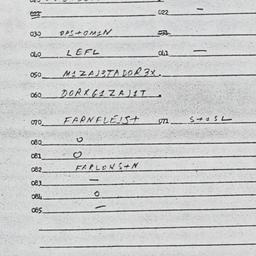 022 022 —
030 DAS+OMIN 031
040 LEFL 041 —
050 M1ZAJ3TADOR3X.
060 DORRG1ZAJ1T.
070 FARNFLEJS+ 071 S+OSL
080 O
081 O
082 FARLONS+N
083 —
084 O
085 —